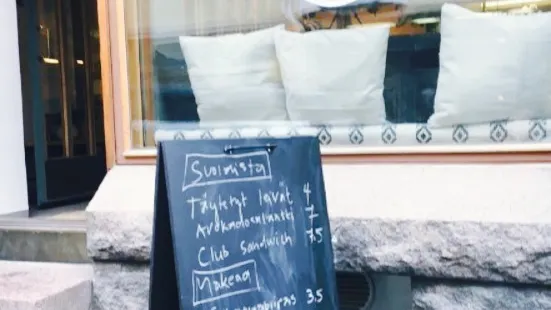 Suolaista
Täytetyt leivät 4
Avokadoleipä 7
Club Sandwich 7,5
Makeaa
3.5